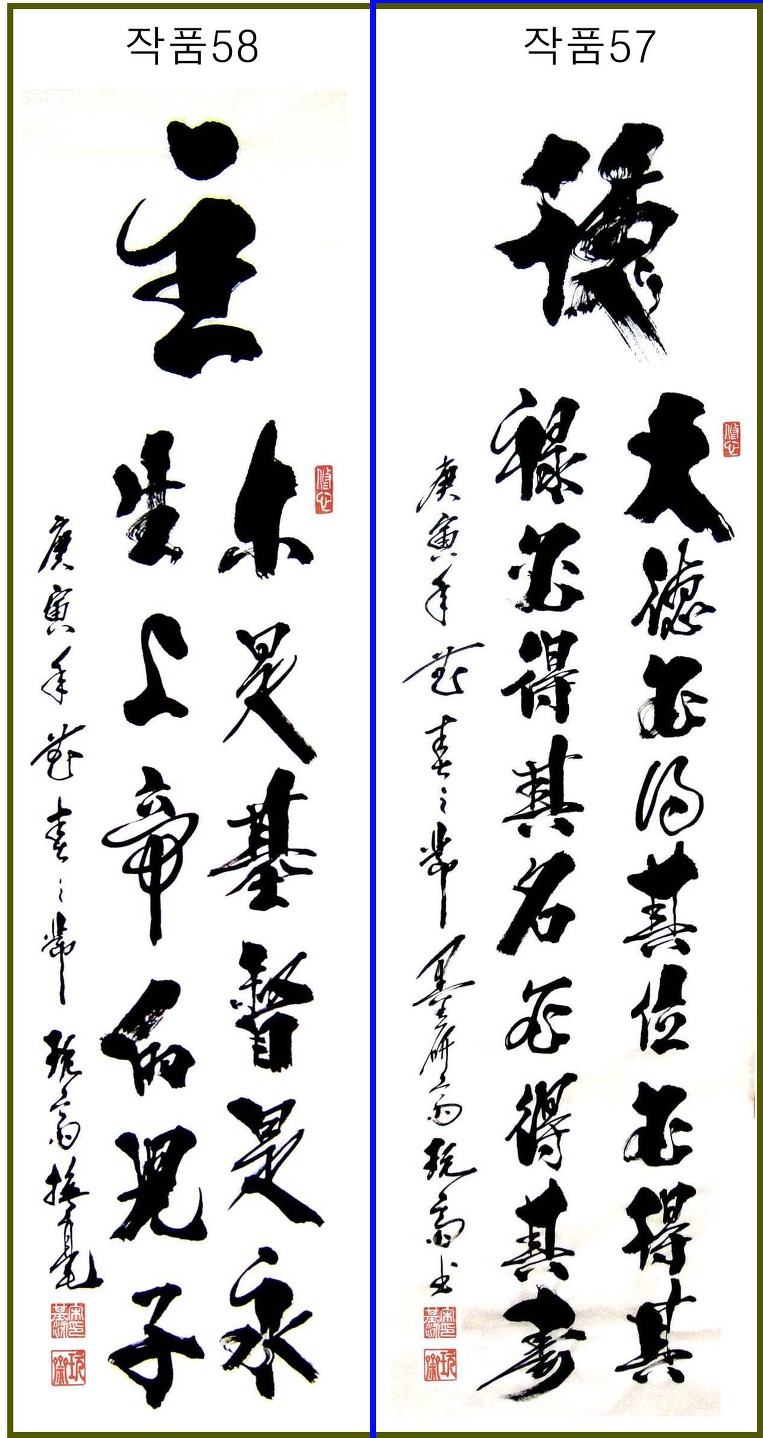 작품58
主
尔是基督是永
生上帝的兒子
庚寅年春之節
작품57
德
大德必得其位必得其
祿必得其名必得其壽
庚寅年春之節墨研齋